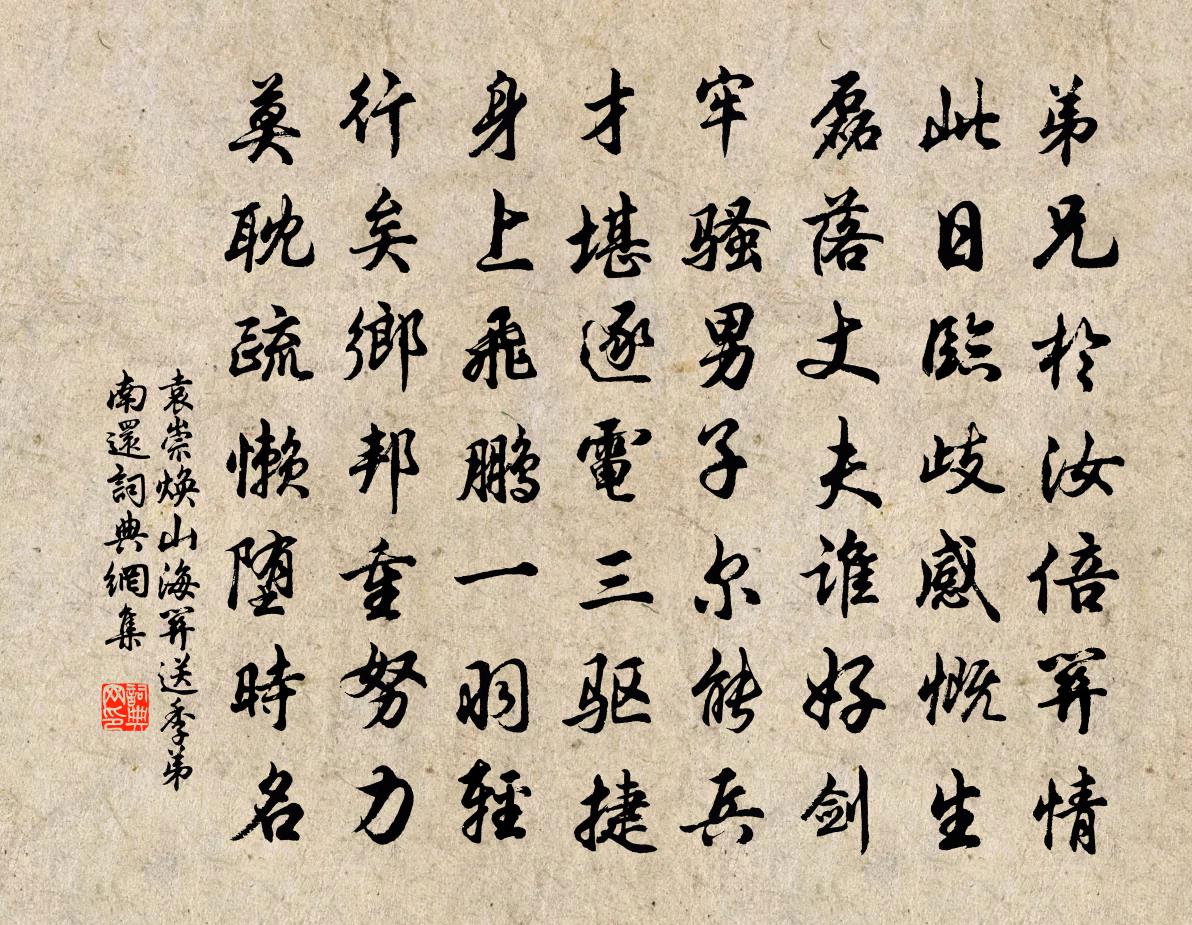 弟兄於汝倍關情
此日臨歧感慨生
磊落丈夫誰好劍
牢騷男子尔能兵
才堪逐電三驅捷
身上飛鵬一羽輕
行矣鄉邦重努力
莫耽疏懶墮時名
袁崇煥山海關送季弟
南還詞典網集
詞典
网印